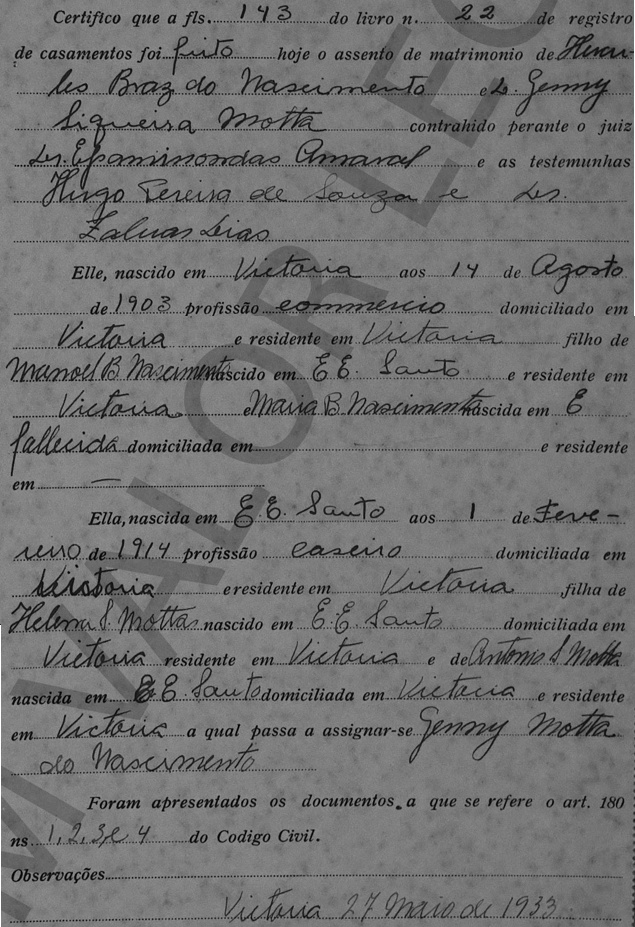 Certifico que a fls. 143 do livro n. 22 de registro
de casamentos foi feito hoje o assento de matrimonio de Hercu-
les Braz do Nascimento e D. Genny
Siqueira Motta contrahido perante o juiz
Dr. Epaminondas Amaral e as testemunhas
Hugo Pereira de Souza e Dr.
Dias
Elle, nascido em Victoria aos 14 de Agosto
de 1903 profissão commercio domiciliado em
Victoria e residente em Victoria filho de
Manoel B Nascimento nascido em E. E. Santo e residente em
Victoria e Maria B Nascimento nascida em E
fallecida domiciliada em e residente
em —
Ella, nascida em E. E. Santo aos 1 de Feve-
reiro de 1914 profissão caseiro domiciliada em
Victoria e residente em Victoria filha de
Helena S. Motta nascido em E. E. Santo domiciliada em
Victoria residente em Victoria e de Antonio S Motta
nascida em E. E. Santo domiciliada em Victoria e residente
em Victoria a qual passa a assignar-se Genny Motta
do Nascimento
Foram apresentados os documentos a que se refere o art. 180
ns 1, 2, 3, e 4 do Codigo Civil.
Observações
Victoria 27 Maio de 1933